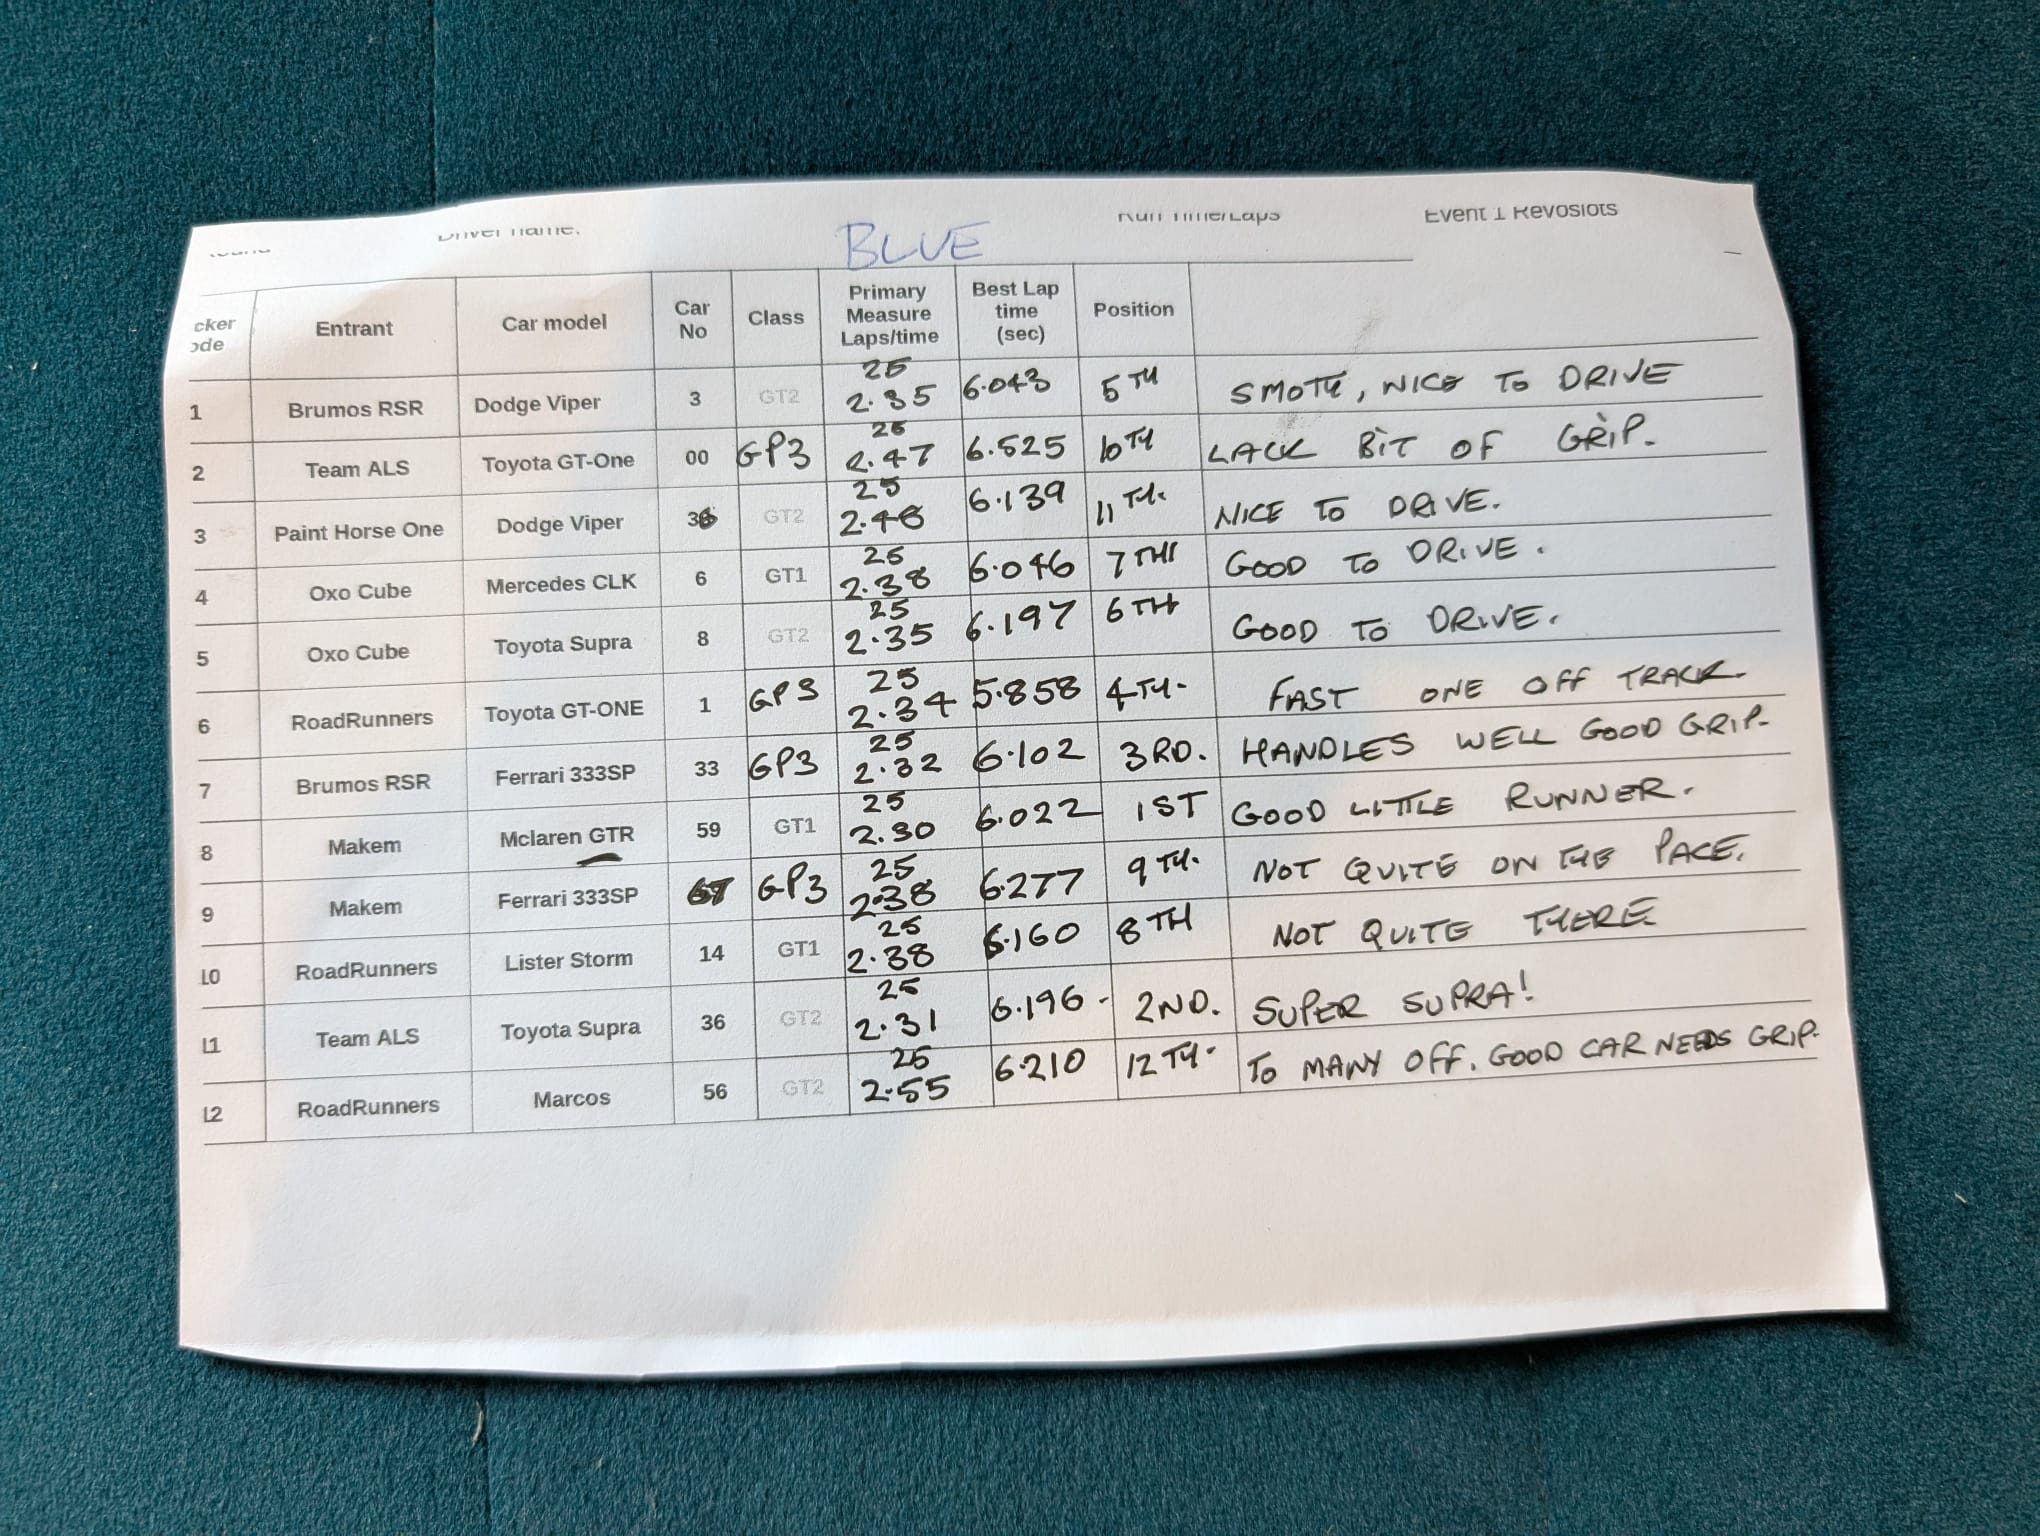 Driver name: BLUE Run Time/Laps Event 1 Revoslots
Entrant Car model Car No Class Primary Measure Laps/time Best Lap time (sec) Position
1 Brumos RSR Dodge Viper 3 GT2 25 2.35 6.043 5TH SMOTH, NICE TO DRIVE
2 Team ALS Toyota GT-One 00 GP3 25 2.47 6.525 10TH LACK BIT OF GRIP.
3 Paint Horse One Dodge Viper GT2 25 2.48 6.139 11TH. NICE TO DRIVE.
4 Oxo Cube Mercedes CLK 6 GT1 25 2.38 6.046 7TH GOOD TO DRIVE.
5 Oxo Cube Toyota Supra 8 GT2 25 2.35 6.197 6TH GOOD TO DRIVE.
6 RoadRunners Toyota GT-ONE 1 GP3 25 2.34 5.858 4TH. FAST ONE OFF TRACK.
7 Brumos RSR Ferrari 333SP 33 GP3 25 2.32 6.102 3RD. HANDLES WELL GOOD GRIP.
8 Makem Mclaren GTR 59 GT1 25 2.30 6.022 1ST GOOD LITTLE RUNNER.
9 Makem Ferrari 333SP GP3 25 2.38 6.277 9TH. NOT QUITE ON THE PACE.
10 RoadRunners Lister Storm 14 GT1 25 2.38 6.160 8TH NOT QUITE THERE
11 Team ALS Toyota Supra 36 GT2 25 2.31 6.196 2ND. SUPER SUPRA!
12 RoadRunners Marcos 56 GT2 25 2.55 6.210 12TH. TO MANY OFF. GOOD CAR NEEDS GRIP.